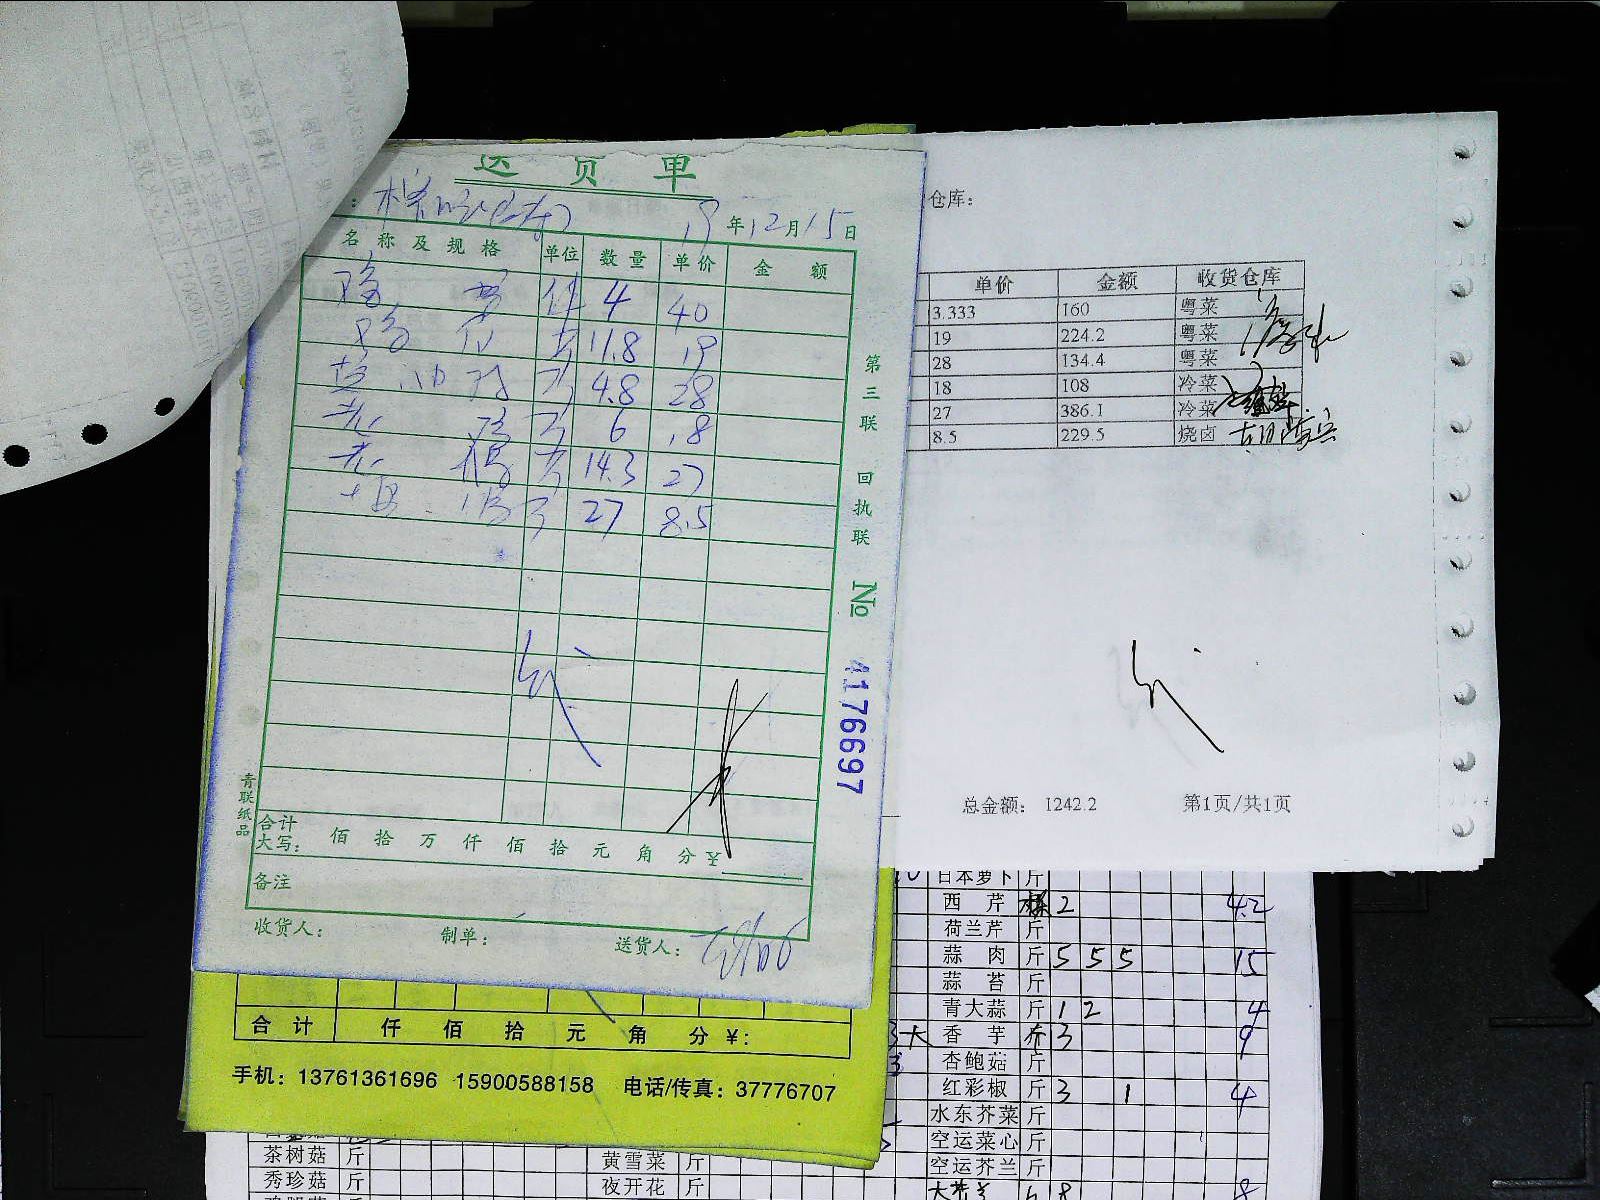 送货单
19年12月15日
名称及规格 单位 数量 单价 金额
鸡 件 4 40
鸡 11.8 19
油鸡 4.8 28
老鸡 6 18
老鸭 14.3 27
27 8.5
合计
大写: 佰 拾 万 仟 佰 拾 元 角 分 ¥
备注
收货人: 制单: 送货人:
第三联 回执联 No 4176697
青联纸品
仓库:
单价 金额 收货仓库
3.333 160 粤菜
19 224.2 粤菜
28 134.4 粤菜
18 108 冷菜
27 386.1 冷菜
8.5 229.5 烧卤
总金额: 1242.2 第1页/共1页
合计 仟 佰 拾 元 角 分 ¥:
手机: 13761361696 15900588158 电话/传真: 37776707
日本萝卜 斤
西芹 2 4.2
荷兰芹 斤
蒜肉 斤 5 5 5 15
蒜苔 斤
青大蒜 斤 1 2 4
香芋 斤 3 9
杏鲍菇 斤
红彩椒 斤 3 1 4
水东芥菜 斤
空运菜心 斤
空运芥兰 斤
茶树菇 斤 黄雪菜 斤
秀珍菇 斤 夜开花 斤